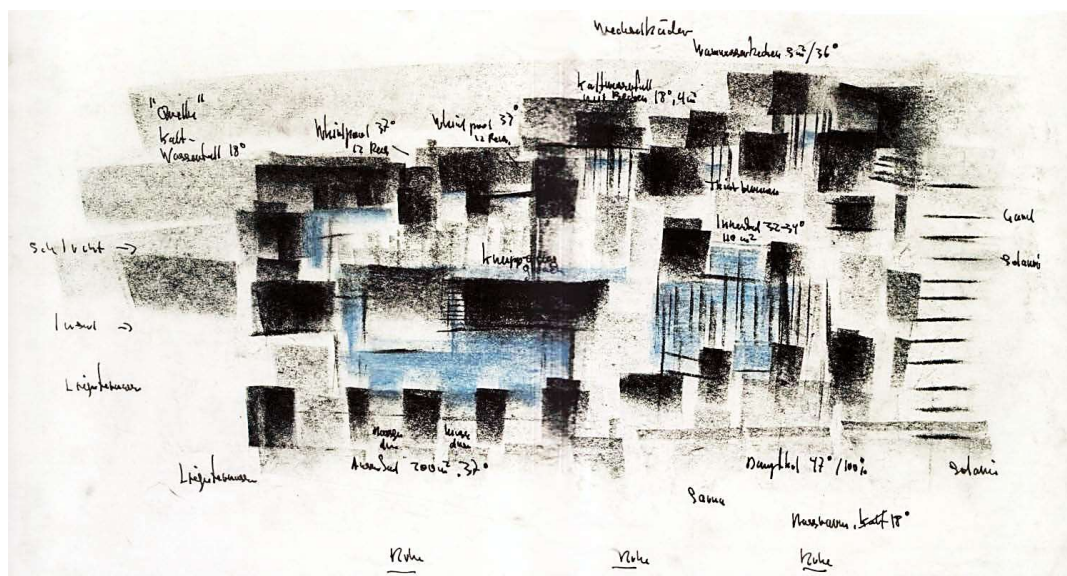 Wechselbäder
Warmwasserbecken 9m²/36°
Kaltwasserfall
mit Becken 18°, 4m²
"Quelle"
Kalt-
Wasserfall 18°
Whirlpool 37°
12 Pers.
Whirlpool 37°
12 Pers.
Trinkbrunnen
Innenbad 32-34°
110 m²
Gard
Solarien
Schlucht →
Kneippgang
Insel →
Liegeterrasse
Liegeterrasse
Aussenbad 200m², 37°
Dampfbad 47°/100%
Solarien
Sauna
kalt 18°
Ruhe
Ruhe
Ruhe